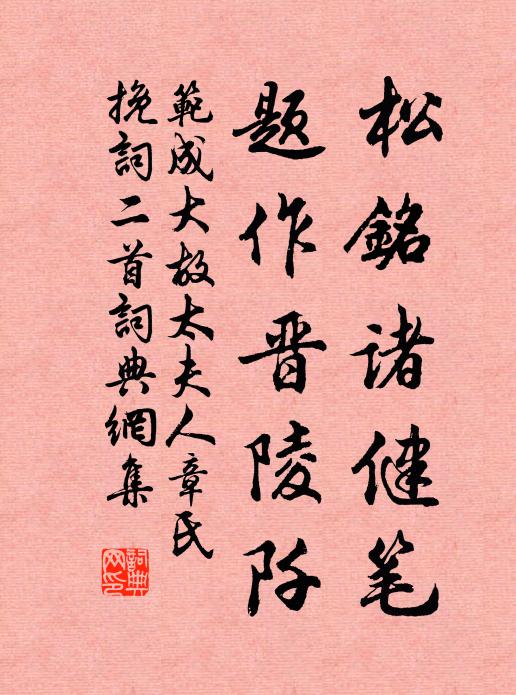 松銘诸健笔
题作晋陵阡
範成大故太夫人章氏
挽詞二首詞典網集
詞典
网印